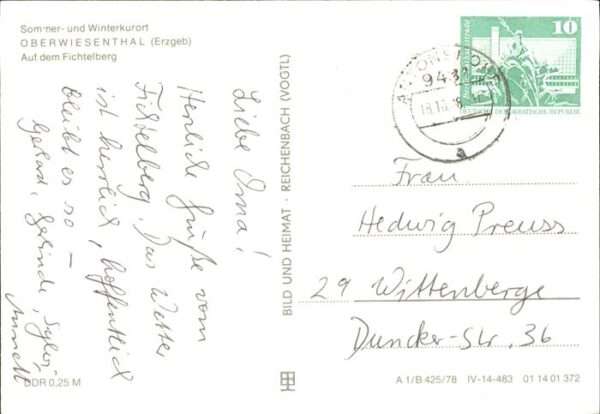 Sommer- und Winterkurort
OBERWIESENTHAL (Erzgeb)
Auf dem Fichtelberg
Liebe Oma!
Herzliche Grüße vom
Fichtelberg. Das Wetter
ist herrlich, hoffentlich
bleibt es so –
Gerhard, Gerlinde,
Annett
BILD UND HEIMAT · REICHENBACH (VOGTL)
10
943
18.10.
a
Frau
Hedwig Preuss
29 Wittenberge
Duncker-Str. 36
DDR 0,25 M
A 1/B 425/78 IV-14-483 01 14 01 372